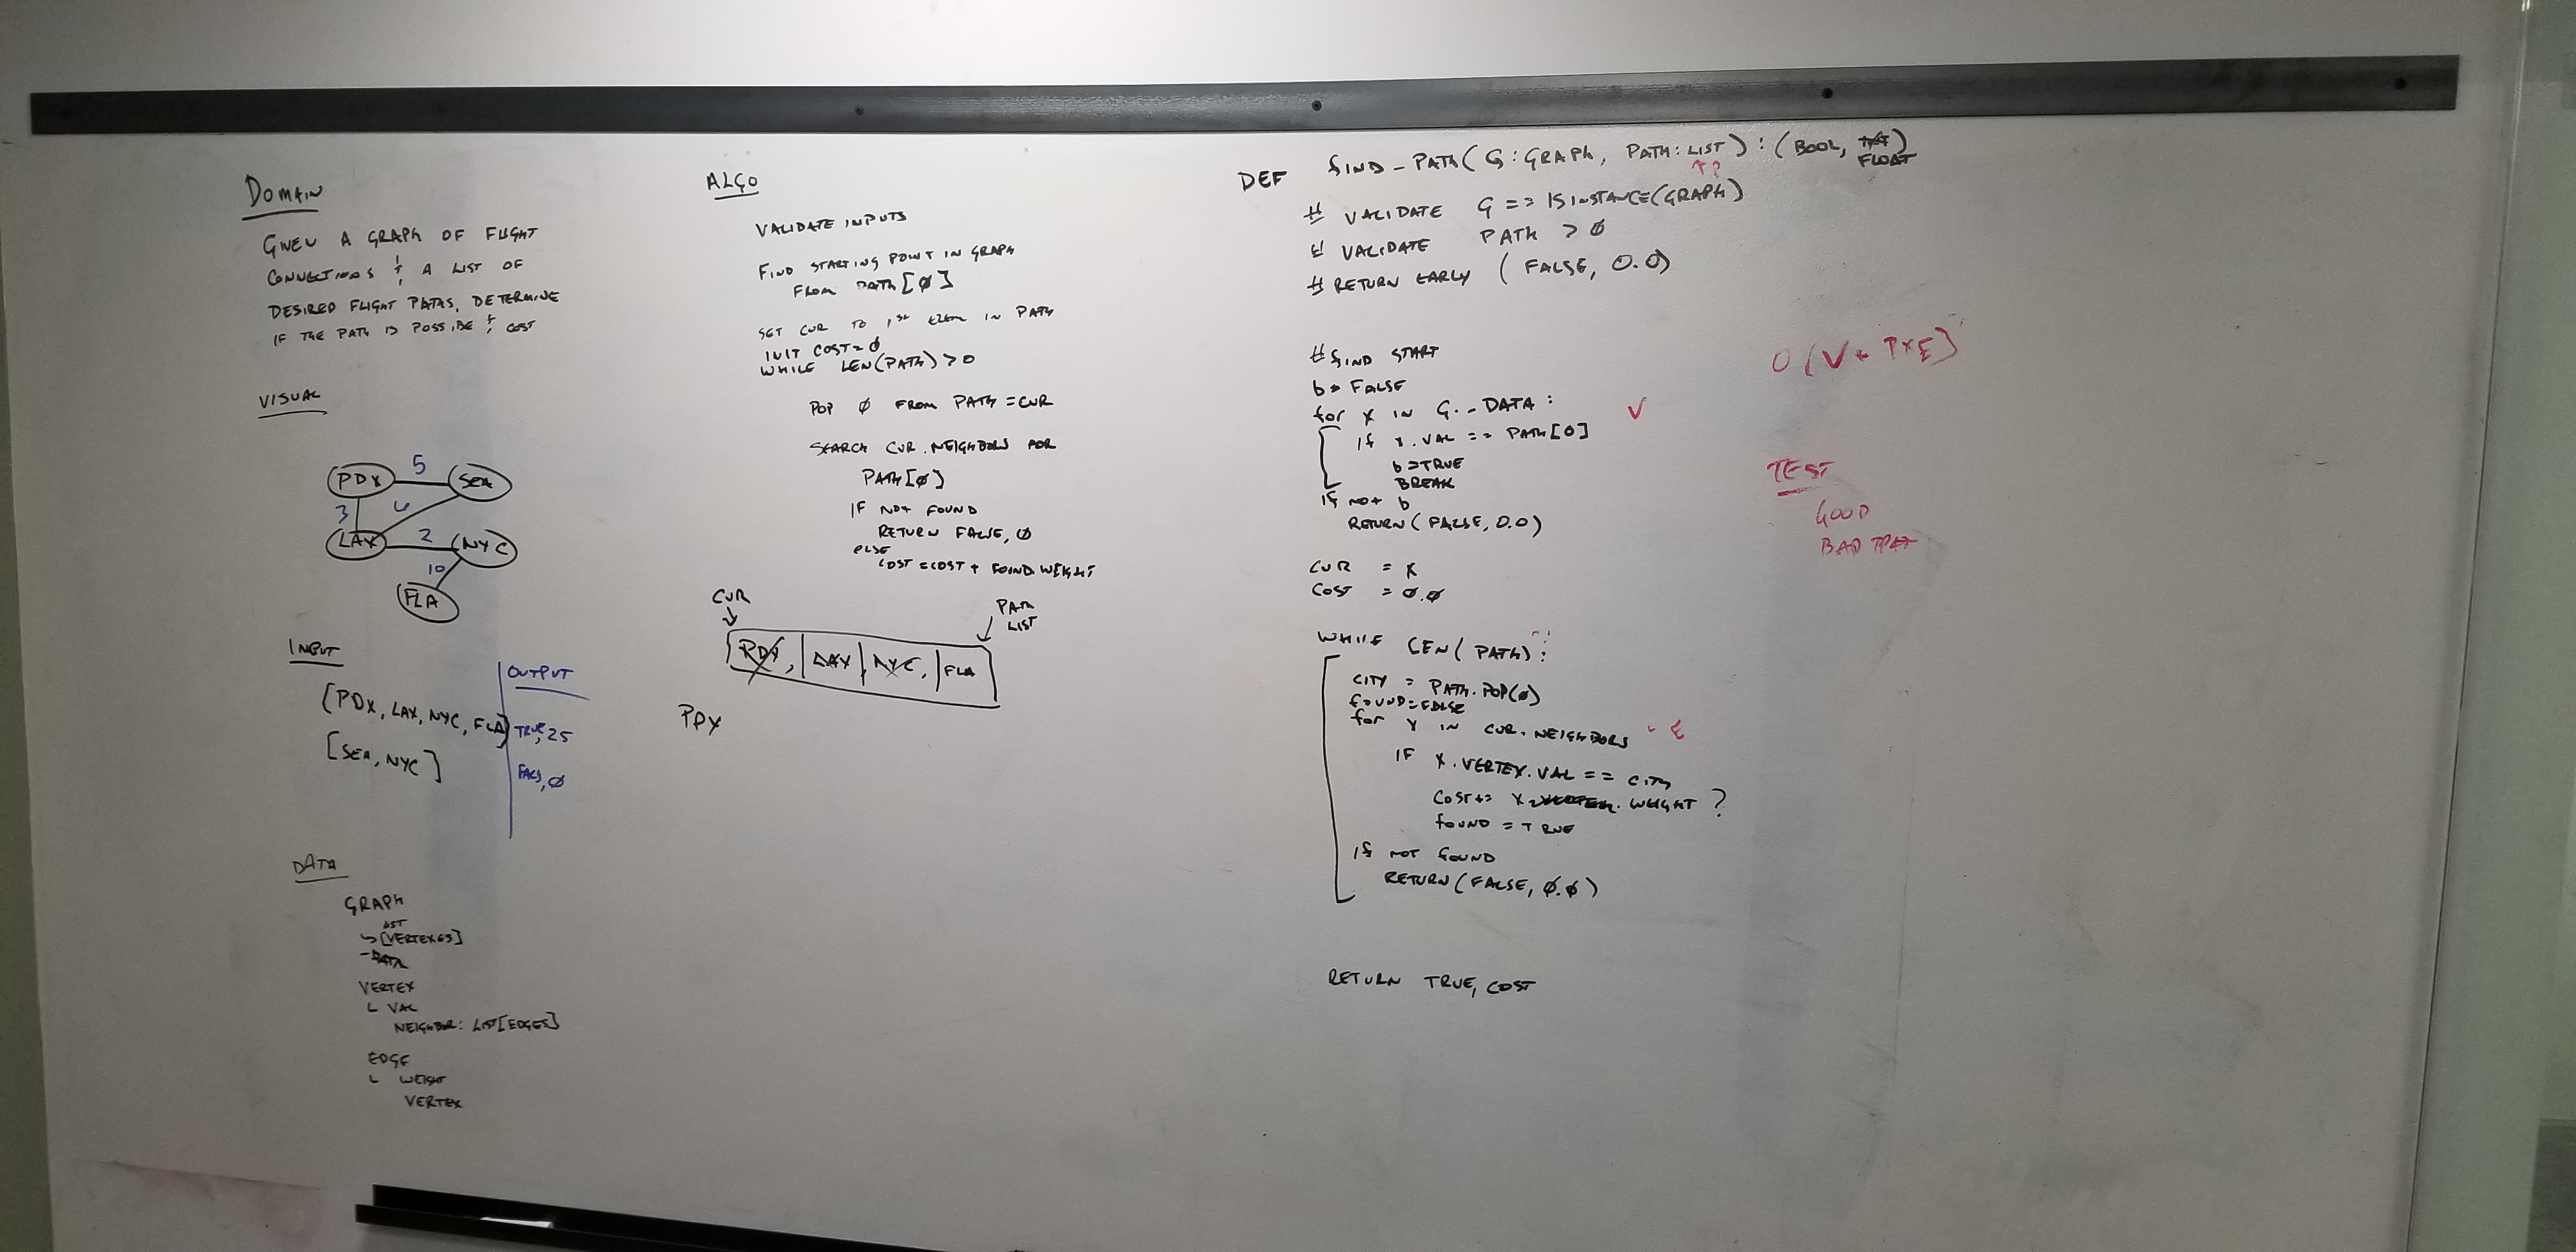 DOMAIN
GIVEN A GRAPH OF FLIGHT
CONNECTIONS & A LIST OF
DESIRED FLIGHT PATHS, DETERMINE
IF THE PATH IS POSSIBE & COST
VISUAL
PDX 5 SEA
3 6
LAX 2 NYC
10
FLA
INPUT
[PDX, LAX, NYC, FLA]
[SEA, NYC]
OUTPUT
TRUE, 25
FALS, Ø
DATA
GRAPH
LIST
↳ [VERTEXES]
-DATA
VERTEX
L VAL
NEIGHBOR: LIST[EDGES]
EDGE
L WEIGHT
VERTEX
ALGO
VALIDATE INPUTS
FIND STARTING POINT IN GRAPH
FROM PATH[Ø]
SET CUR TO 1ST ELEM IN PATH
INIT COST=Ø
WHILE LEN(PATH) > 0
POP Ø FROM PATH = CUR
SEARCH CUR.NEIGHBORS FOR
PATH[Ø]
IF NOT FOUND
RETURN FALSE, Ø
ELSE
COST = COST + FOUND.WEIGHT
CUR
PATH
LIST
PDX, LAX, NYC, FLA
PDX
DEF find_PATH(G:GRAPH, PATH:LIST):(BOOL, FLOAT)
↑?
# VALIDATE G == ISINSTANCE(GRAPH)
# VALIDATE PATH > Ø
# RETURN EARLY (FALSE, 0.0)
# find START
b = FALSE
for X IN G._DATA: V
if X.VAL == PATH[0]
b = TRUE
BREAK
if not b
RETURN (FALSE, 0.0)
CUR = X
COST = Ø.Ø
WHILE LEN(PATH):
CITY = PATH.POP(Ø)
found = FALSE
for Y IN CUR.NEIGHBORS - E
IF X.VERTEX.VAL == CITY
COST += X.WEIGHT ?
found = TRUE
if not found
RETURN (FALSE, Ø.Ø)
RETURN TRUE, COST
O(V + P*E)
TEST
GOOD
BAD